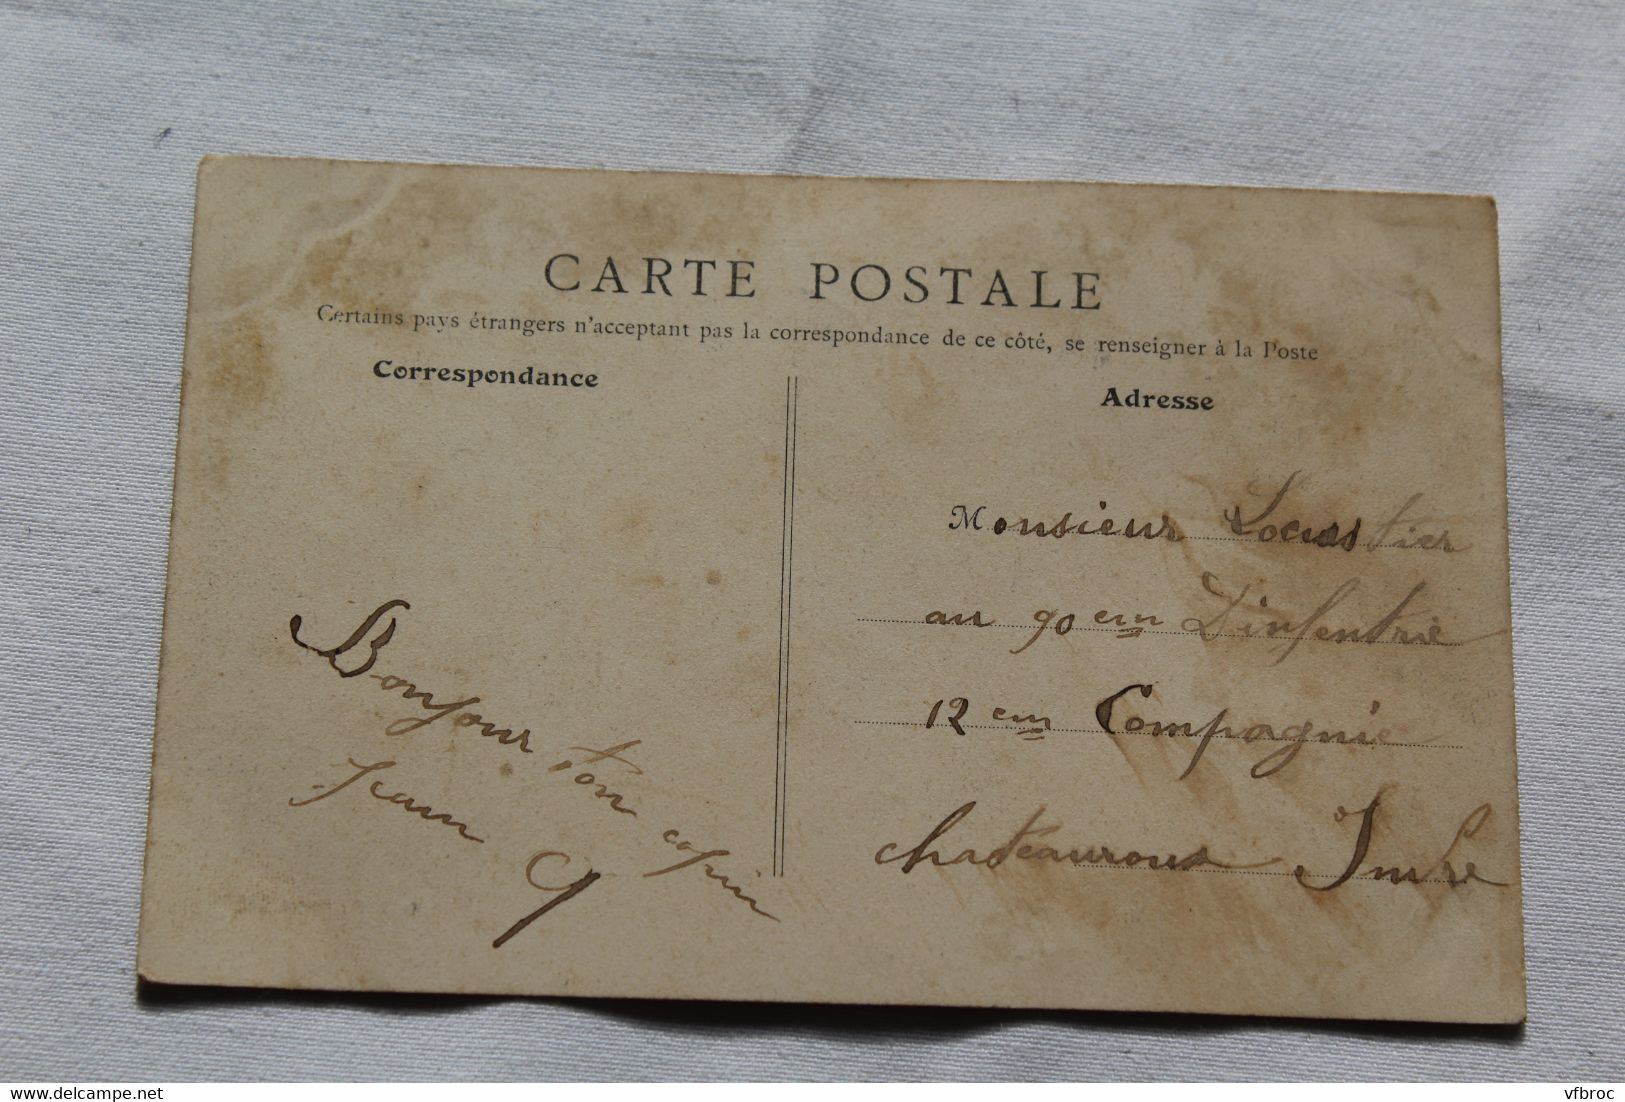 CARTE POSTALE
Certains pays étrangers n'acceptant pas la correspondance de ce côté, se renseigner à la Poste
Correspondance
Bonjour ton copin
Jean
Adresse
Monsieur Locusstier
au 90 em D'infentrie
12 em Compagnie
chateauroux Indre
delcampe.net
vfbroc